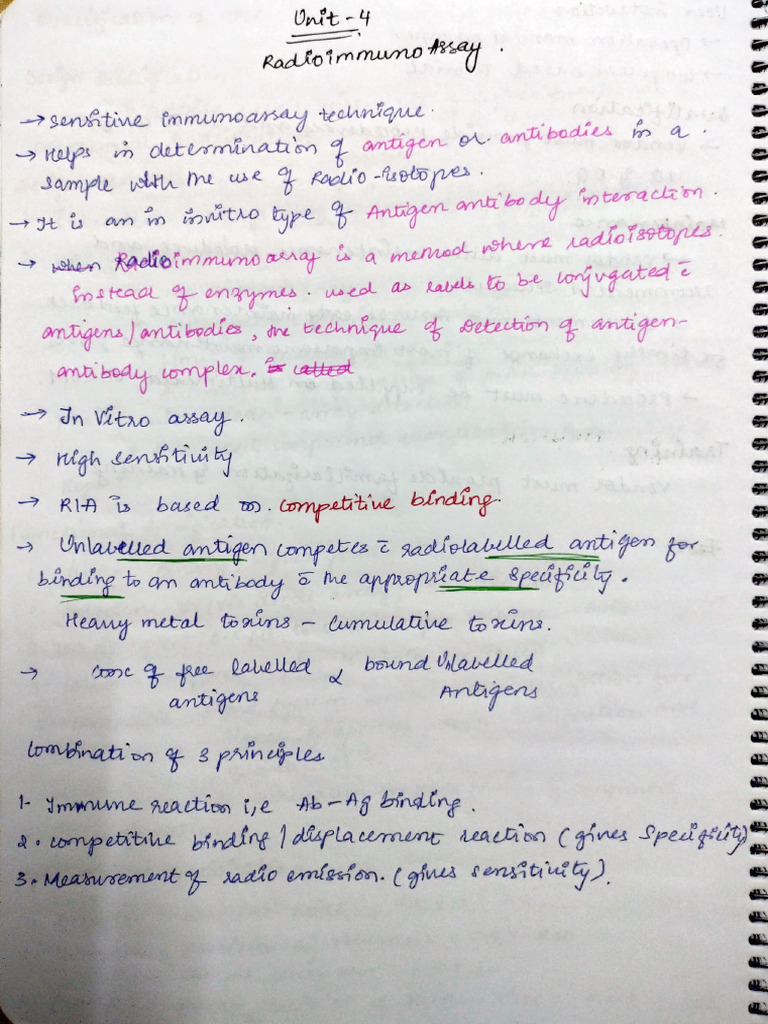 Unit - 4
Radioimmuno Assay.
→ Sensitive immunoassay technique.
→ Helps in determination of antigen or antibodies in a
sample with the use of Radio-isotopes.
→ It is an in invitro type of Antigen antibody interaction.
→ when Radioimmunoassay is a method where radioisotopes
Instead of enzymes. used as labels to be conjugated c̄
antigens/antibodies, the technique of Detection of antigen-
antibody complex. is called
→ In Vitro assay.
→ High sensitivity
→ RIA is based on competitive binding.
→ Unlabelled antigen competes c̄ radiolabelled antigen for
binding to an antibody c̄ the appropriate specificity.
Heavy metal toxins - cumulative toxins.
→ conc of free labelled & bound Unlabelled
antigens Antigens
Combination of 3 principles
1- Immune reaction i,e Ab-Ag binding.
2. competitive binding/displacement reaction (gives Specificity)
3. Measurement of radio emission. (gives sensitivity).